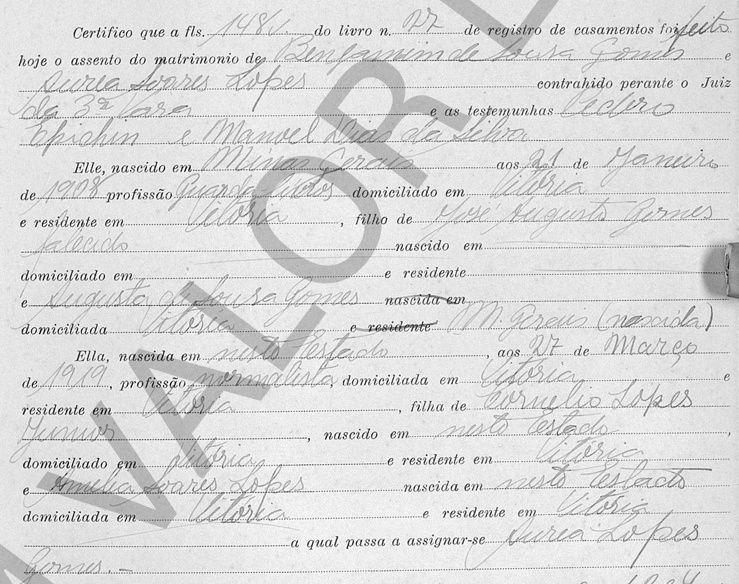 Certifico que a fls. 148v. do livro n. 27 de registro de casamentos foi feito
hoje o assento do matrimonio de Benjamim de Sousa Gomes e
Aurea Soares Lopes contrahido perante o Juiz
da 3ª Vara e as testemunhas Cicero
e Manoel Dias da Silva
Elle, nascido em Minas Geraes aos 21 de Janeiro
de 1908 profissão Guarda-livros domiciliado em Vitória
e residente em Vitória, filho de José Augusto Gomes
falecido nascido em
domiciliado em e residente
e Augusta de Sousa Gomes nascida em
domiciliada Vitória e residente M. Geraes (nascida)
Ella, nascida em neste Estado, aos 27 de Março
de 1919, profissão normalista, domiciliada em Vitória e
residente em Vitória, filha de Cornelio Lopes
Junior, nascido em neste Estado,
domiciliado em Vitória e residente em Vitória
e Amelia Soares Lopes nascida em neste Estado
domiciliada em Vitória e residente em Vitória
a qual passa a assignar-se Aurea Lopes
Gomes. —
VALOR